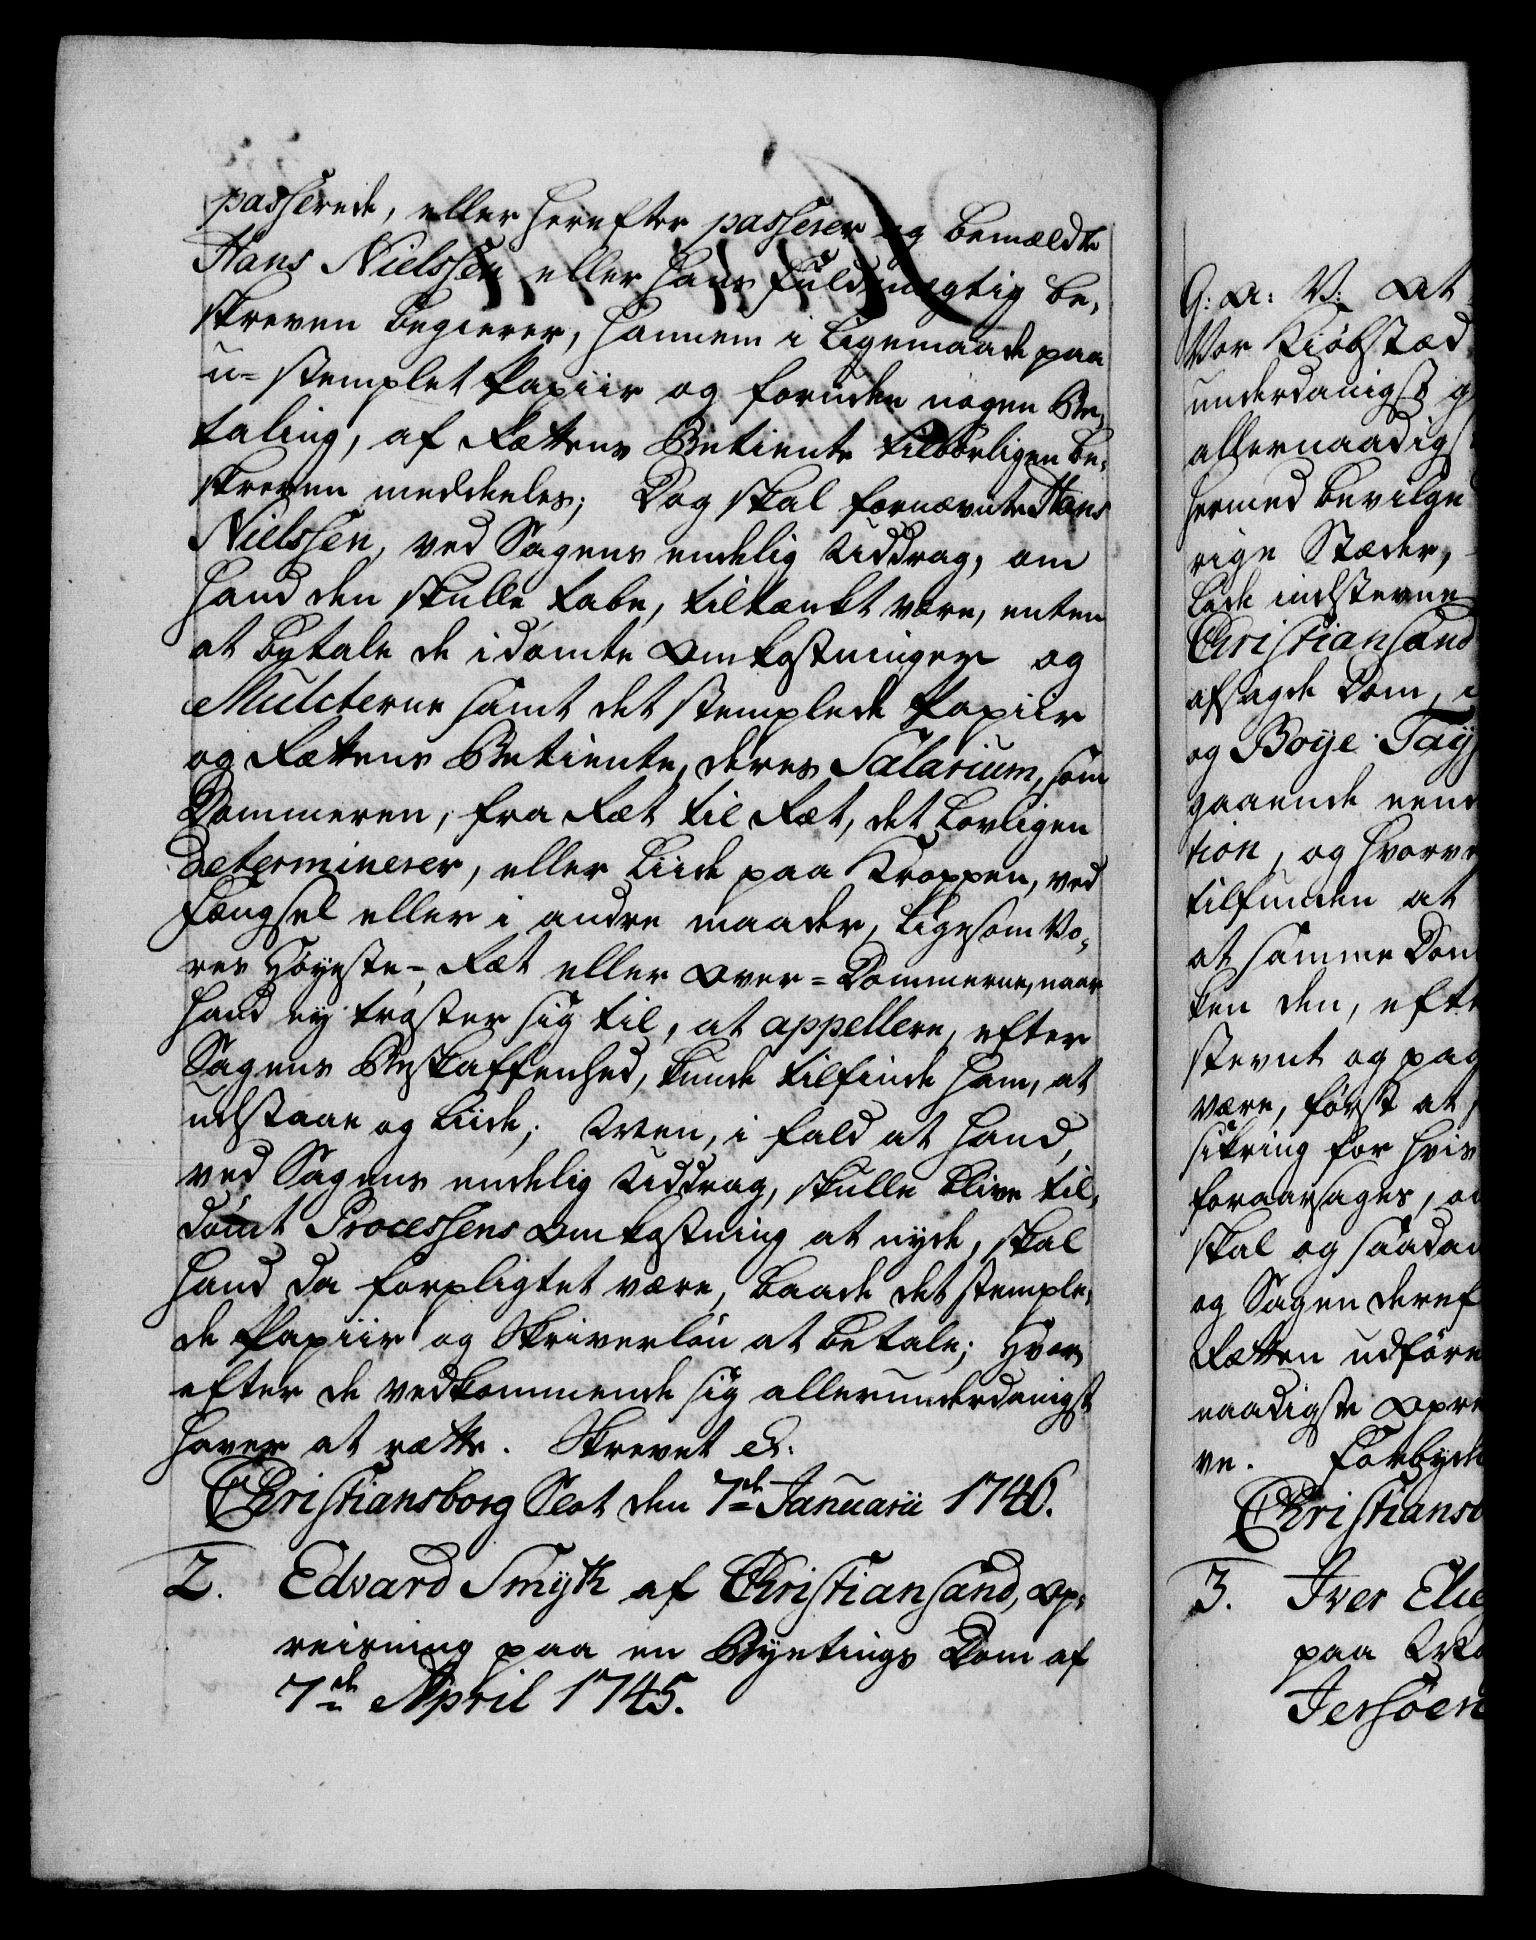 passerede, eller herefter passerer og bemældte
Hans Nielssen eller hans fuldmægtig be-
skreven begierer, hannem i ligemaade paa
u-stemplet Papiir og foruden nogen Be-
taling, af Rættens Betiente tilbörligen be-
skreven meddeeles; Dog skal fornævnte Hans
Nielssen, ved Sagens endelig Uddrag, om
hand den skulle tabe, tiltænkt være, enten
at betale de idömte Omkostninger og
Mulcterne samt det stemplede Papiir
og Rættens Betiente, deres Salarium, som
Dommeren, fra Ræt til Ræt, det lovligen
determinerer, eller liide paa Kroppen, ved
Fængsel eller i andre maader, ligesom Vo-
res Höyeste-Ræt eller Over-Dommerne, naar
hand ey tröster sig til, at appellere, efter
Sagens Beskaffenhed, kunde tilfinde ham, at
udstaae og liide; Men, i fald at hand,
ved Sagens endelig Uddrag, skulle blive til-
dömt Processens Omkostning at nyde, skal
hand da forpligtet være, baade det stemple-
de Papiir og Skriverlön at betale; Hvor-
efter de vedkommende sig allerunderdanigst
haver at rætte. Skrevet &.
Christiansborg Slot den 7de Januarii 1746.
2. Edvard Smyth af Christiansand, Op-
reisning paa en Byetings Dom af
7de April 1745.
G: A: V: At
Vor Kiöbstæd
underdanigst g
allernaadigs
hermed bevilge
rige Stæder,
lade indstevne
Christiansand
afsagde Dom, i
og Boye Tay
gaaende eend
tion, og hvorve
tilfunden at
at samme Dom
ken den, efte
stevnt og paa
være, först at
sikring for hvis
foraarsages, o
skal og saadan
og Sagen deref
Rætten udföre
naadigste Opre
ve. Forbyde
Christiansb
3. Iver Elie
paa
Jersöen